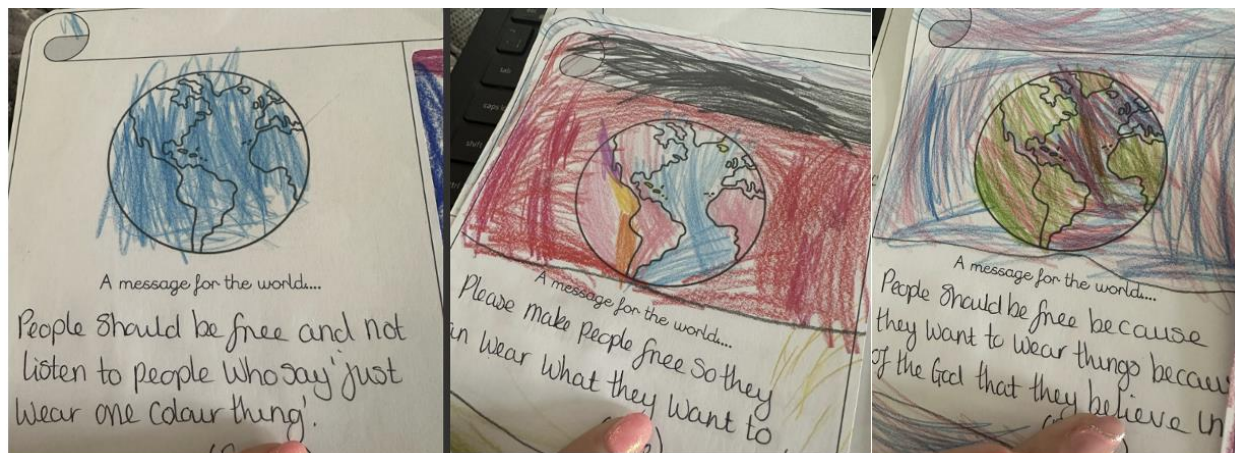 A message for the world....
People should be free and not
listen to people who say 'just
wear one colour thing'.
tab
caps lock
shift
A message for the world....
Please make people free so they
an wear what they want to
A message for the world....
People should be free because
they want to wear things becau
of the God that they believe in